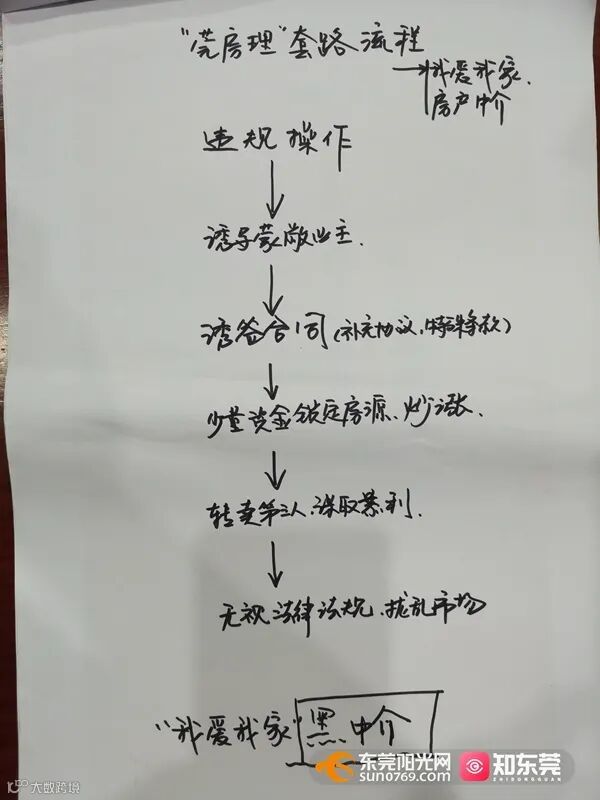 "莞房理"套路流程
我爱我家、
房产中介
违规操作
诱导蒙蔽业主.
诱签合同(补充协议、特殊条款)
少量资金锁定房源、炒涨、
转卖第三人、谋取暴利.
无视法律法规、扰乱市场
"我爱我家"黑中介
东莞阳光网
sun0769.com
知东莞
ZHIDONGGUAN
大数跨境